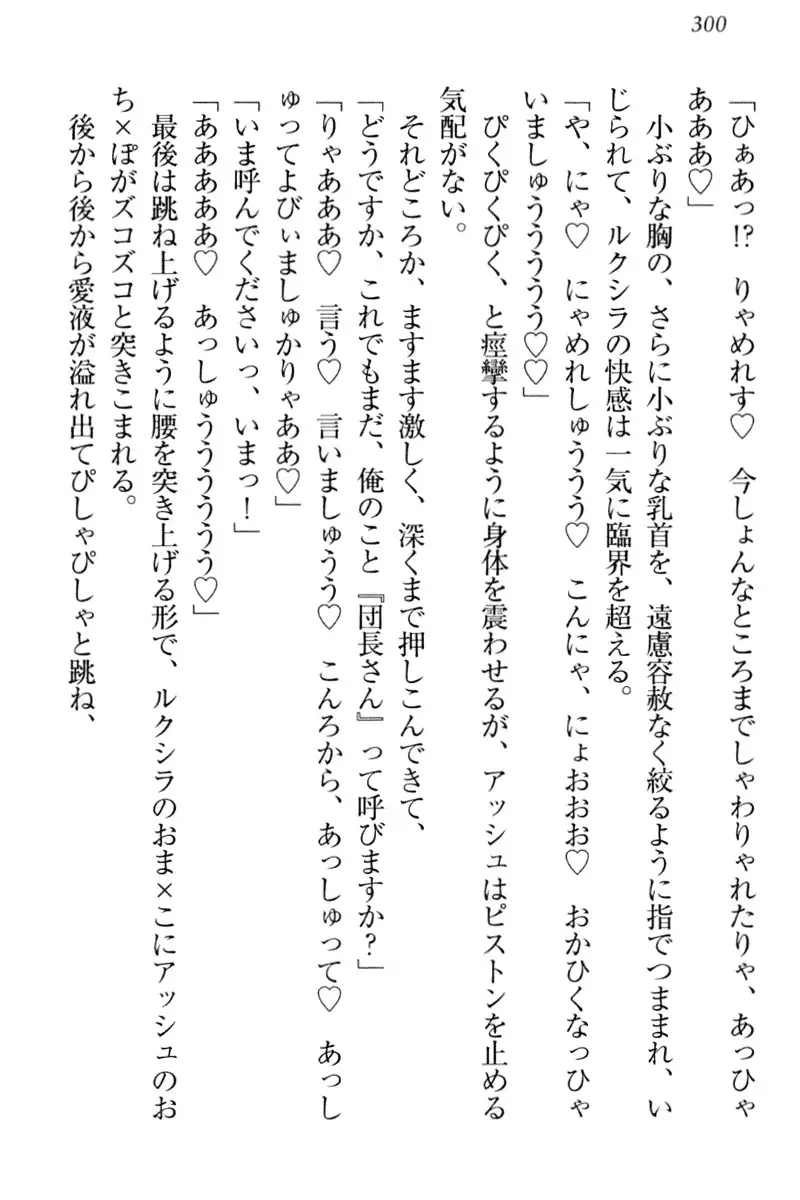 300
「ひぁあっ!?　りゃめれす♡　今しょんなところまでしゃわりゃれたりゃ、あっひゃ
あああ♡」
　小ぶりな胸の、さらに小ぶりな乳首を、遠慮容赦なく絞るように指でつままれ、い
じられて、ルクシラの快感は一気に臨界を超える。
「や、にゃ♡　にゃめれしゅううう♡　こんにゃ、にょおおお♡　おかひくなっひゃ
いましゅうううううう♡♡」
　ぴくぴくぴく、と痙攣するように身体を震わせるが、アッシュはピストンを止める
気配がない。
　それどころか、ますます激しく、深くまで押しこんできて、
「どうですか、これでもまだ、俺のこと『団長さん』って呼びますか？」
「りゃあああ♡　言う♡　言いましゅうう♡　こんろから、あっしゅって♡　あっし
ゅってよびぃましゅかりゃああ♡」
「いま呼んでくださいっ、いまっ！」
「あああああ♡　あっしゅうううううう♡」
　最後は跳ね上げるように腰を突き上げる形で、ルクシラのおま×こにアッシュのお
ち×ぽがズコズコと突きこまれる。
　後から後から愛液が溢れ出てぴしゃぴしゃと跳ね、